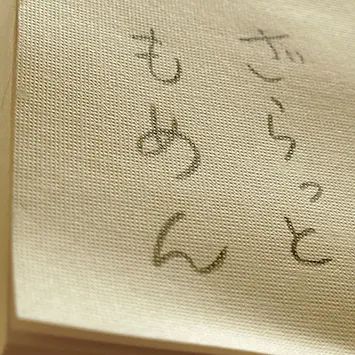 ざらっと
もめん